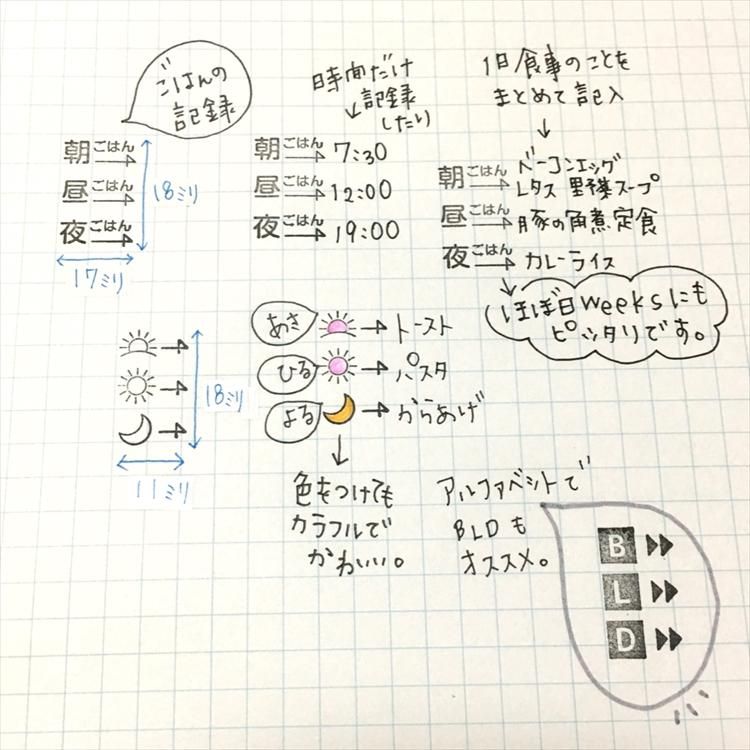 ごはんの
記録
朝ごはん
昼ごはん
夜ごはん
18ミリ
17ミリ
時間だけ
記録
したり
朝ごはん 7:30
昼ごはん 12:00
夜ごはん 19:00
1日食事のことを
まとめて記入
朝ごはん ベーコンエッグ
レタス 野菜スープ
昼ごはん 豚の角煮定食
夜ごはん カレーライス
ほぼ日weeksにも
ピッタリです。
18ミリ
11ミリ
あさ トースト
ひる パスタ
よる からあげ
色をつけても
カラフルで
かわいい。
アルファベットで
BLDも
オススメ。
B
L
D